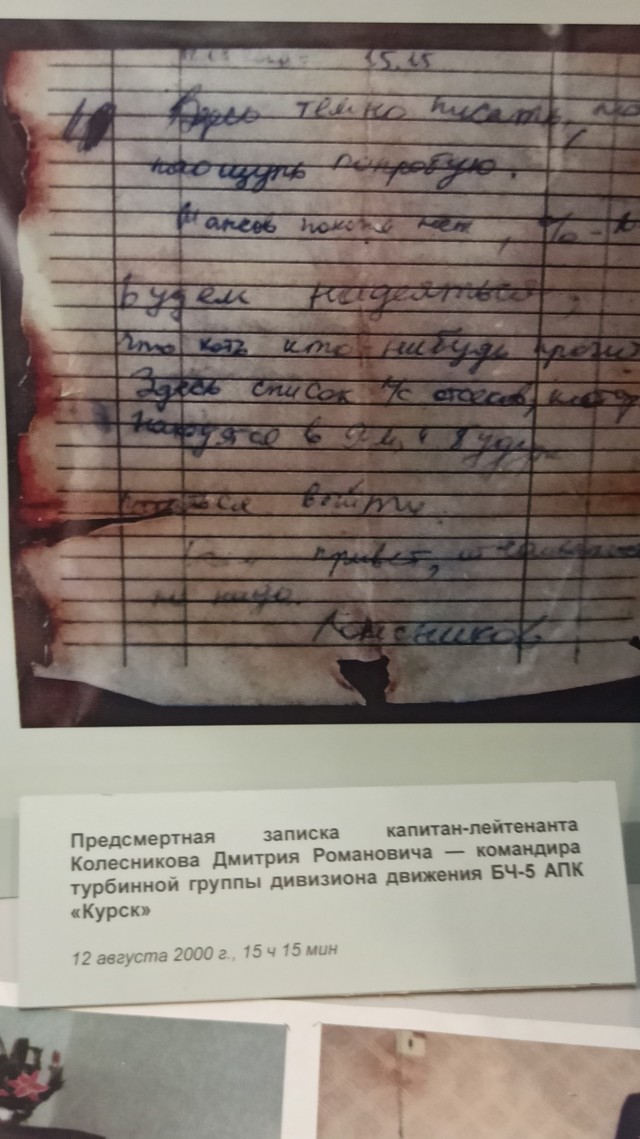 15.15
темно писать, но
наощупь попробую.
Шансов похоже нет, % -
Будем надеяться,
что хоть кто-нибудь прочит
Здесь список л/с отсеков, котор
находятся в 9-м, и будут
выйти.
привет,
не надо.
Колесников
Предсмертная записка капитан-лейтенанта
Колесникова Дмитрия Романовича — командира
турбинной группы дивизиона движения БЧ-5 АПК
«Курск»
12 августа 2000 г., 15 ч 15 мин